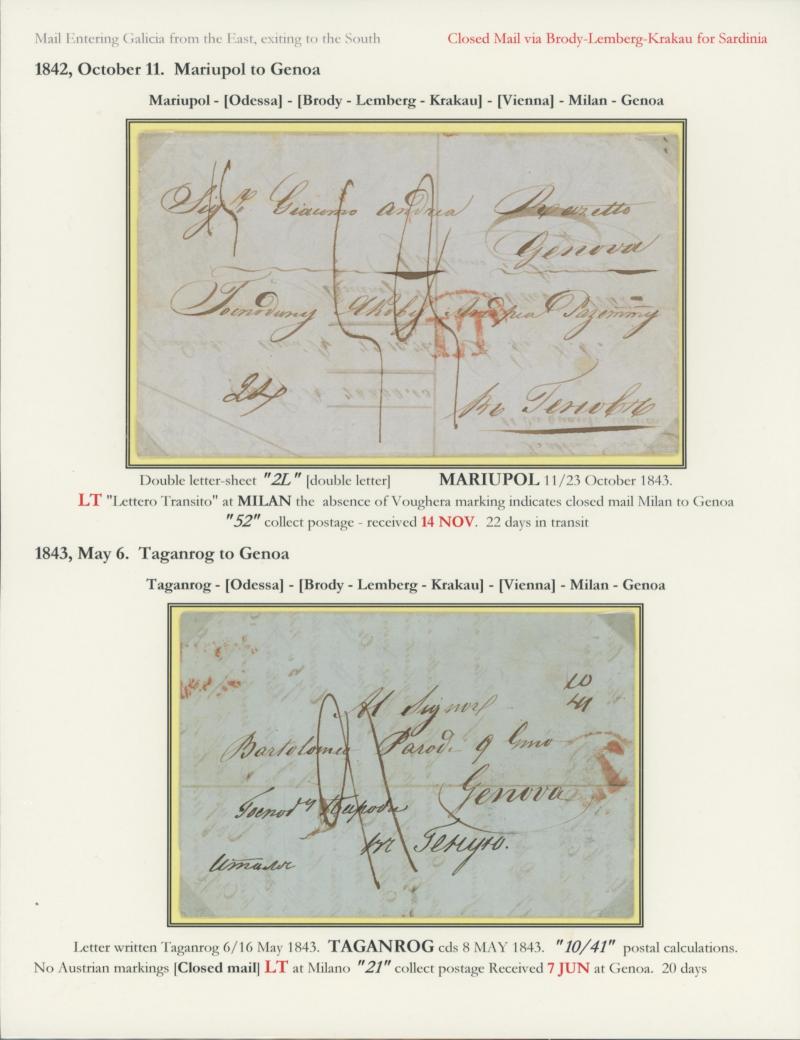 Mail Entering Galicia from the East, exiting to the South
Closed Mail via Brody-Lemberg-Krakau for Sardinia
1842, October 11. Mariupol to Genoa
Mariupol - [Odessa] - [Brody - Lemberg - Krakau] - [Vienna] - Milan - Genoa
Sigr. Giacomo Andrea
Genova
LT
въ
Double letter-sheet "2L" [double letter] MARIUPOL 11/23 October 1843.
LT "Lettero Transito" at MILAN the absence of Voughera marking indicates closed mail Milan to Genoa
"52" collect postage - received 14 NOV. 22 days in transit
1843, May 6. Taganrog to Genoa
Taganrog - [Odessa] - [Brody - Lemberg - Krakau] - [Vienna] - Milan - Genoa
10
41
Al Signor
Bartolomeo Parodi q Gmo
Genova
Пароди
въ Геную.
Италія
Letter written Taganrog 6/16 May 1843. TAGANROG cds 8 MAY 1843. "10/41" postal calculations.
No Austrian markings [Closed mail] LT at Milano "21" collect postage Received 7 JUN at Genoa. 20 days